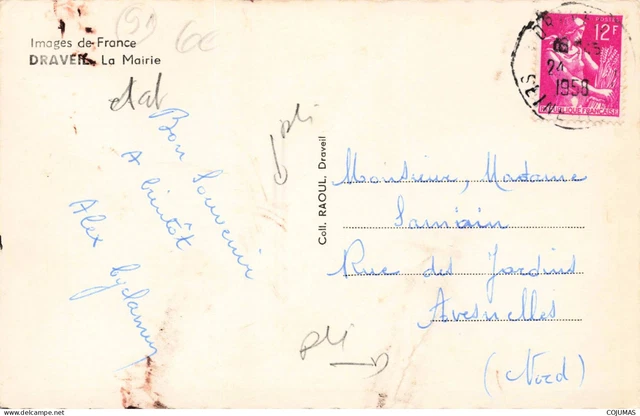 (91)
6€
Images de France
DRAVEIL La Mairie
état
Bon souvenir
A bientôt
Alex
pli
Coll. RAOUL, Draveil
POSTES
12F
REPUBLIQUE FRANÇAISE
24
1958
Monsieur, Madame
Samain
Rue des Jardins
Avesnelles
(Nord)
pli
www.delcampe.net
COJUMAS